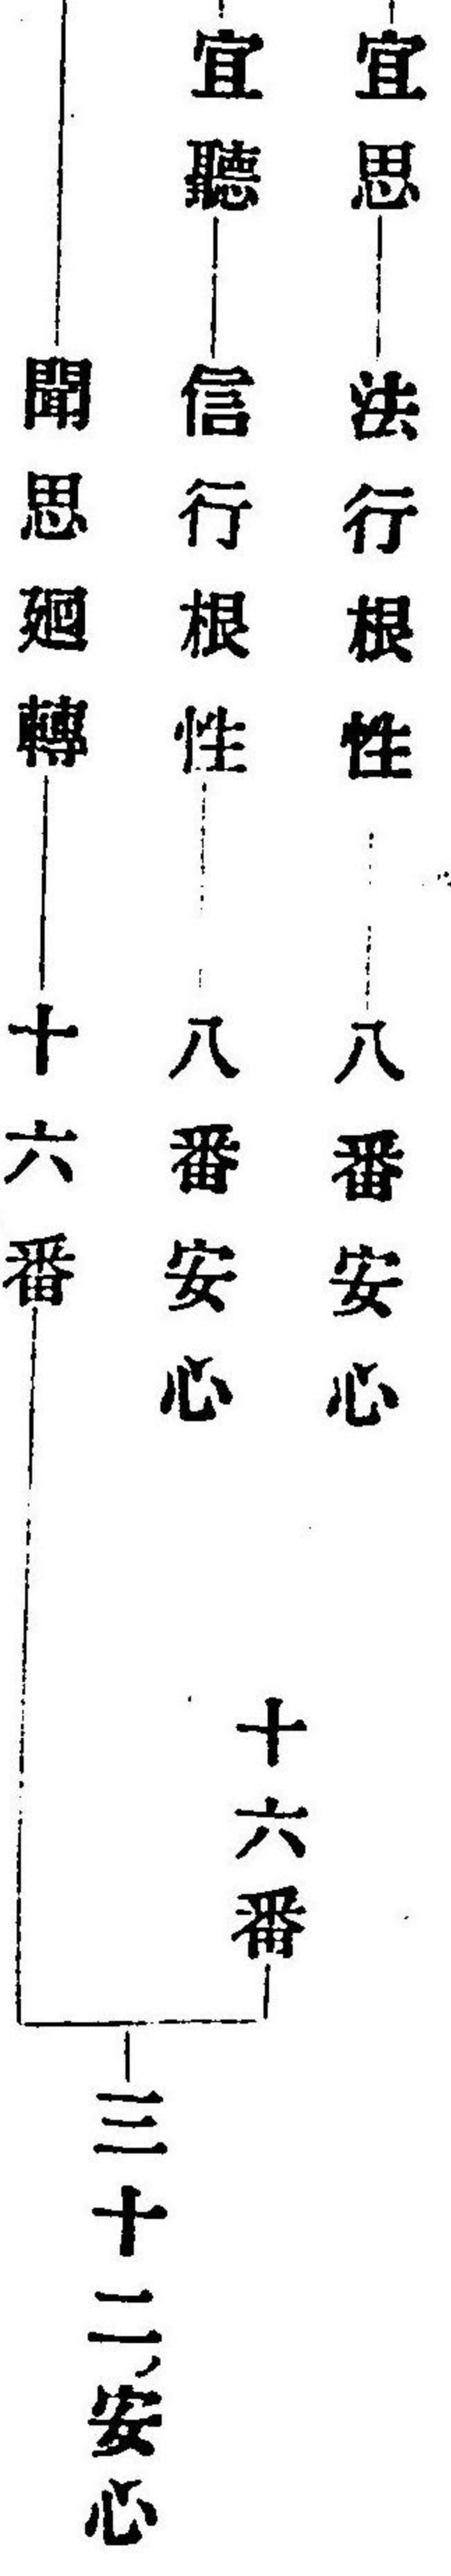 宜思法行根性八番安心
宜聽信行根性八番安心
十六番
聞思廻轉十六番
三十二、安心